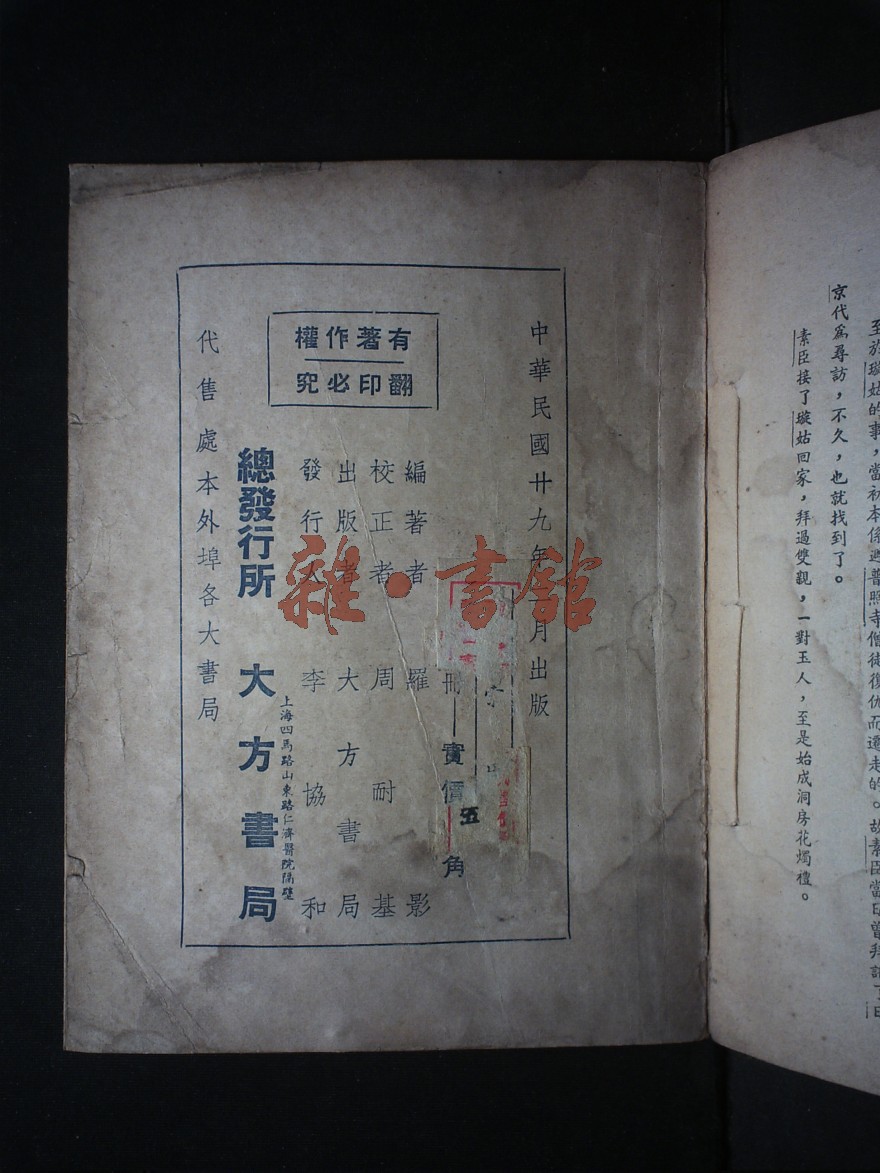 至於璇姑的事，當初本係避普照寺僧徒復仇而遷走的。故素臣當日曾拜託了日
京代爲尋訪，不久，也就找到了。
素臣接了璇姑回家，拜過雙親，一對玉人，至是始成洞房花燭禮。
有著作權
翻印必究
中華民國廿九年 月出版
冊 實價 五角
編著者 羅 影
校正者 周耐基
出版者 大方書局
發行人 李協和
總發行所 大方書局
上海四馬路山東路仁濟醫院隔壁
代售處本外埠各大書局
雜·書館